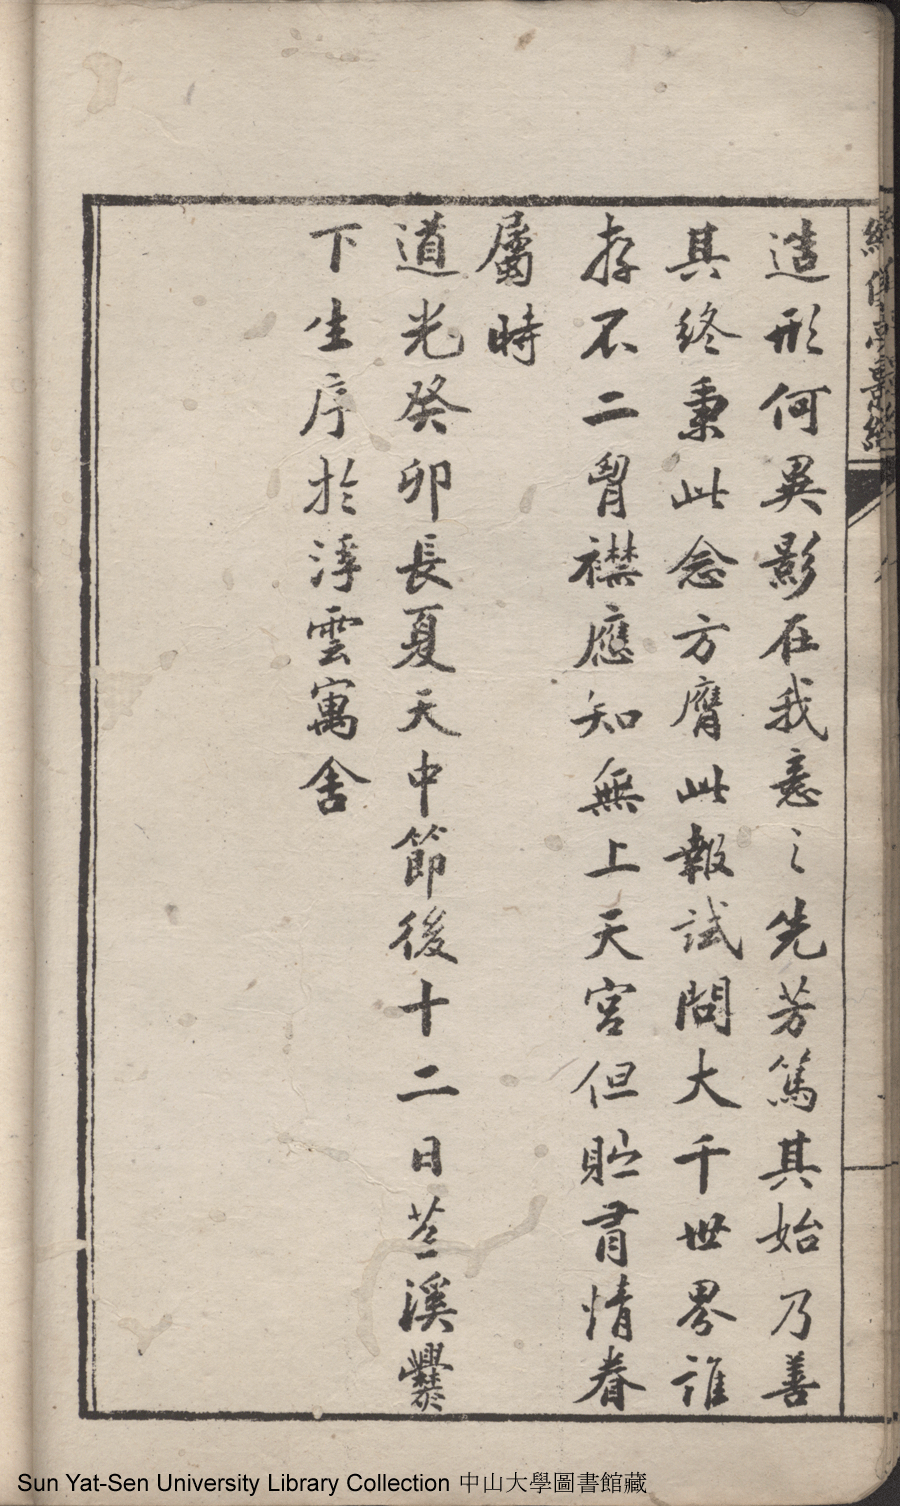 造形何異影在我意〻先芳篤其始乃善
其終秉此念方膺此報試問大千世界誰
存不二胷襟應知無上天宮但貯有情眷
屬時
道光癸卯長夏天中節後十二日苎溪爨
下生序於浮雲寓舍
Sun Yat-Sen University Library Collection 中山大學圖書館藏